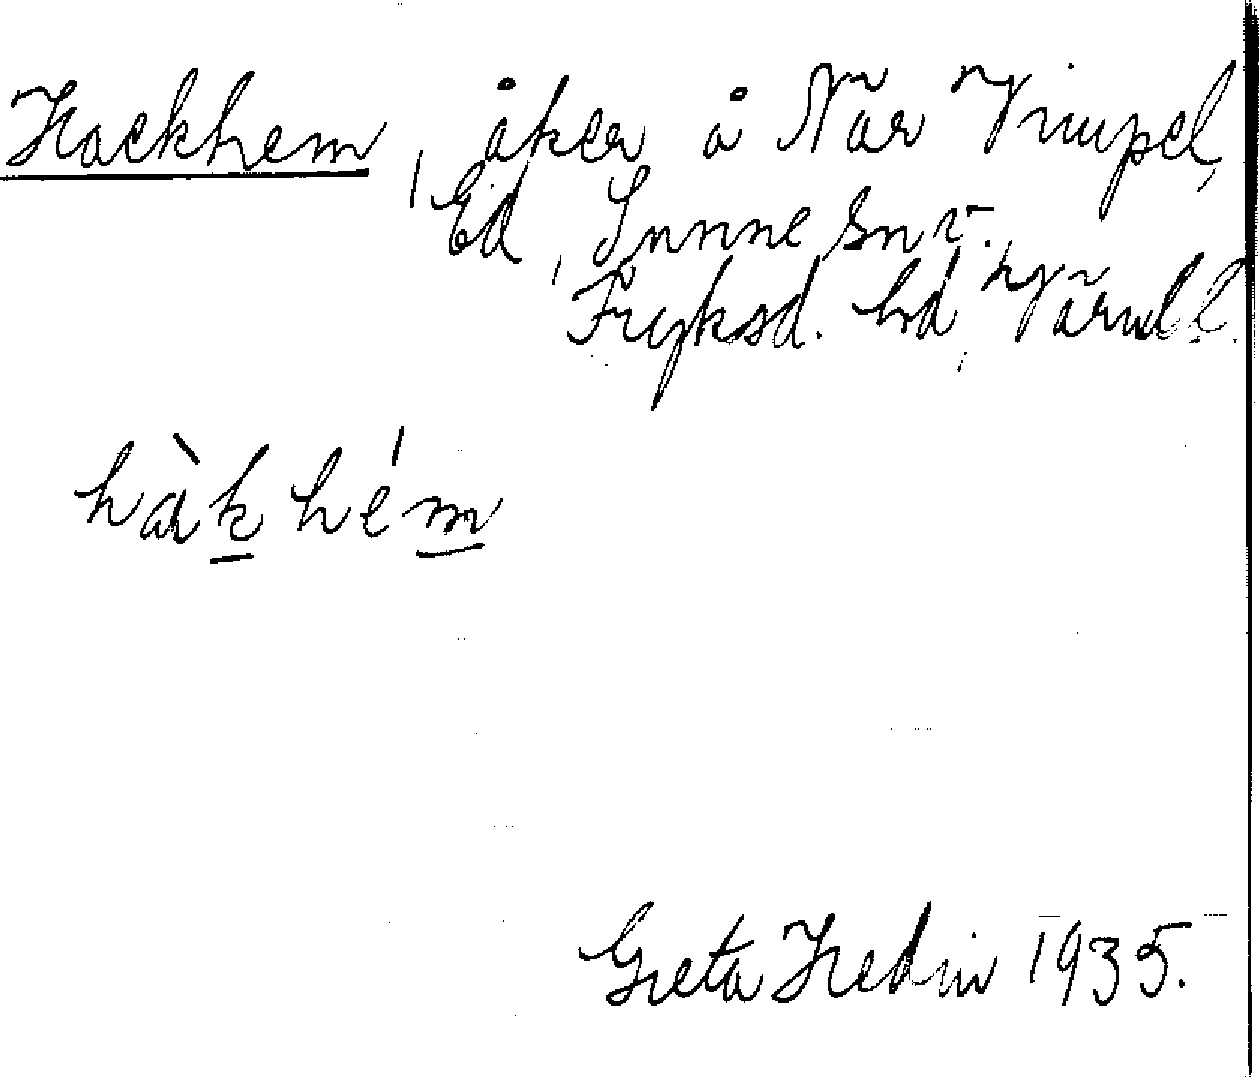 Hackhem, åker å När Vimpel,
Ed, Sunne snr.,
Fryksd. hd, Värml l.
hàkhém
Greta Hedin 1935.